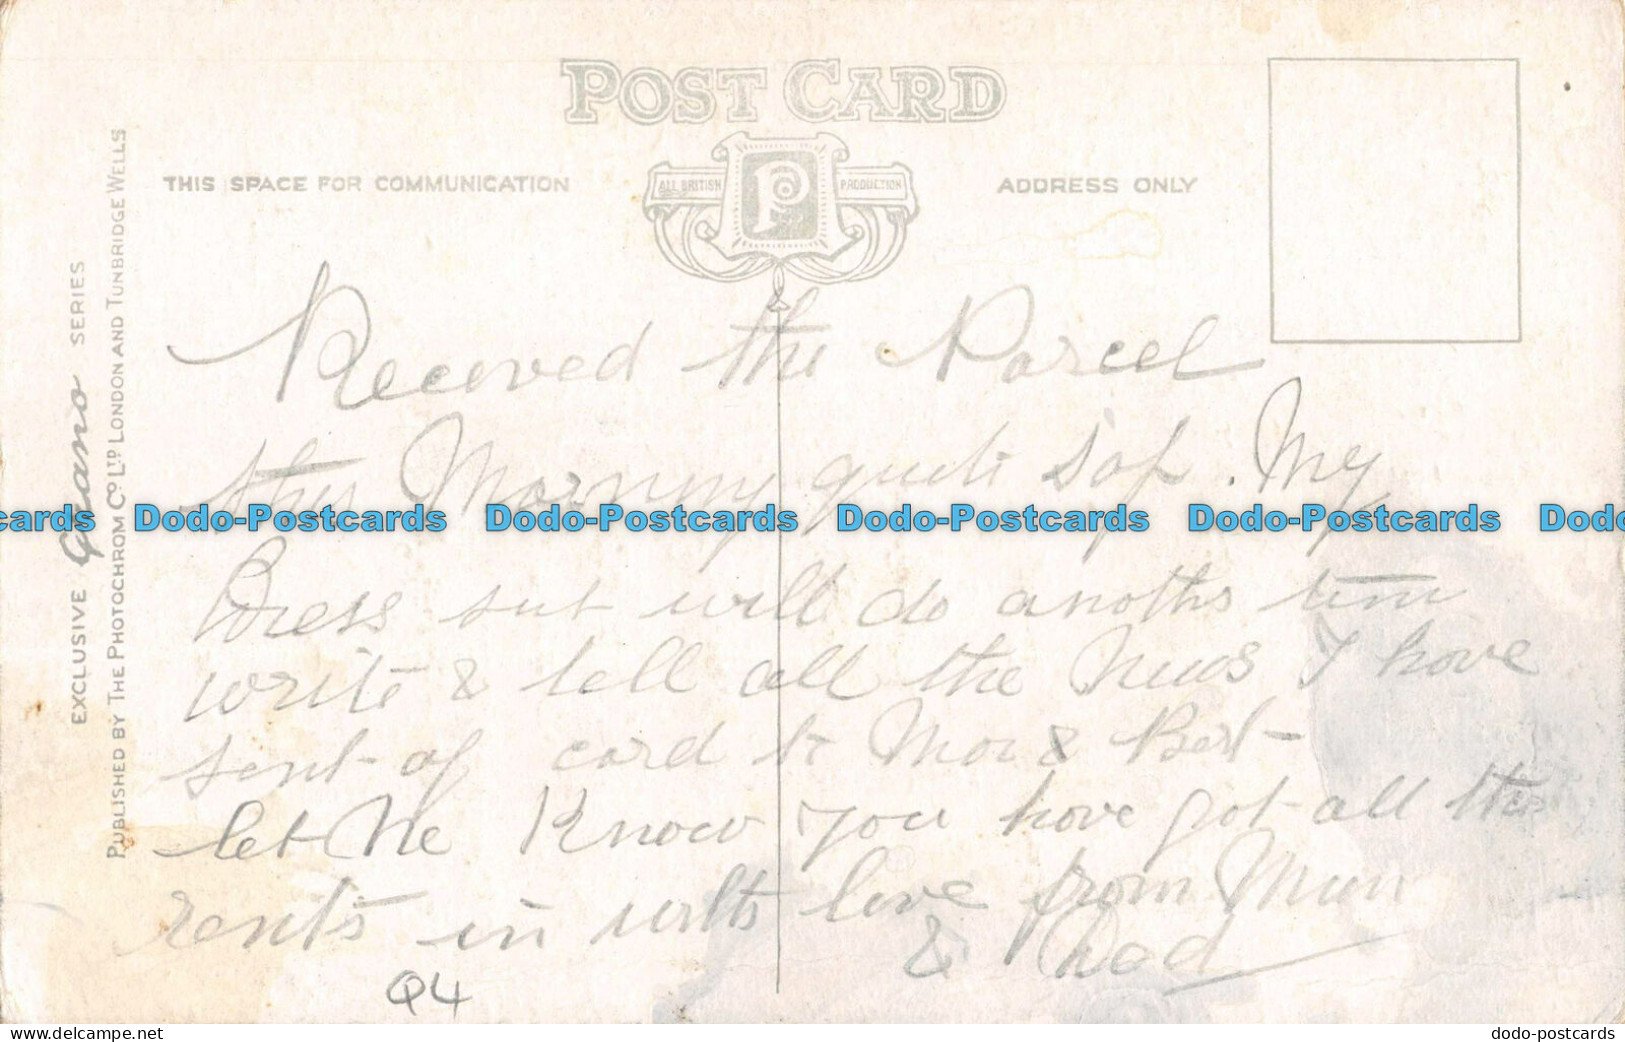 POST CARD
THIS SPACE FOR COMMUNICATION
ALL BRITISH P PRODUCTION
ADDRESS ONLY
EXCLUSIVE Grano SERIES
PUBLISHED BY THE PHOTOCHROM CO. LTD LONDON AND TUNBRIDGE WELLS
Received the Parcel
this Morning quite Saf. My
Dress suit will do another time
write & tell all the News I have
sent of card to & Bert
let Me Know you have got all the
rents in with love from Mum
& Dad
Q4
cards Dodo-Postcards Dodo-Postcards Dodo-Postcards Dodo-Postcards Dodo
www.delcampe.net
dodo-postcards